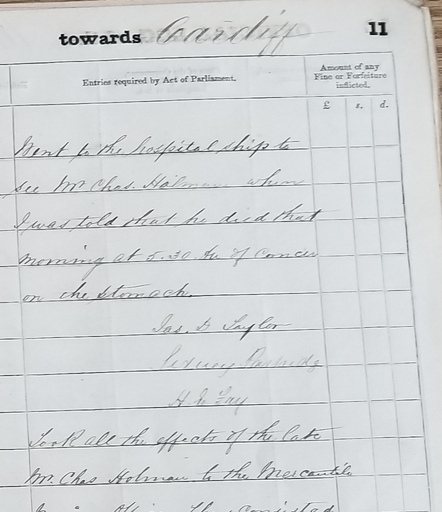 towards Cardiff 11
Entries required by Act of Parliament.
Amount of any
Fine or Forfeiture
inflicted.
£ s. d.
Went to the hospital ship to
see Mr Chas. Holman when
I was told that he died that
morning at 5.30 Am of Cancer
on the Stomach.
Jas. Taylor
Sidney
H
Took all the effects of the late
Mr. Chas Holman to the Mercantile
consisted